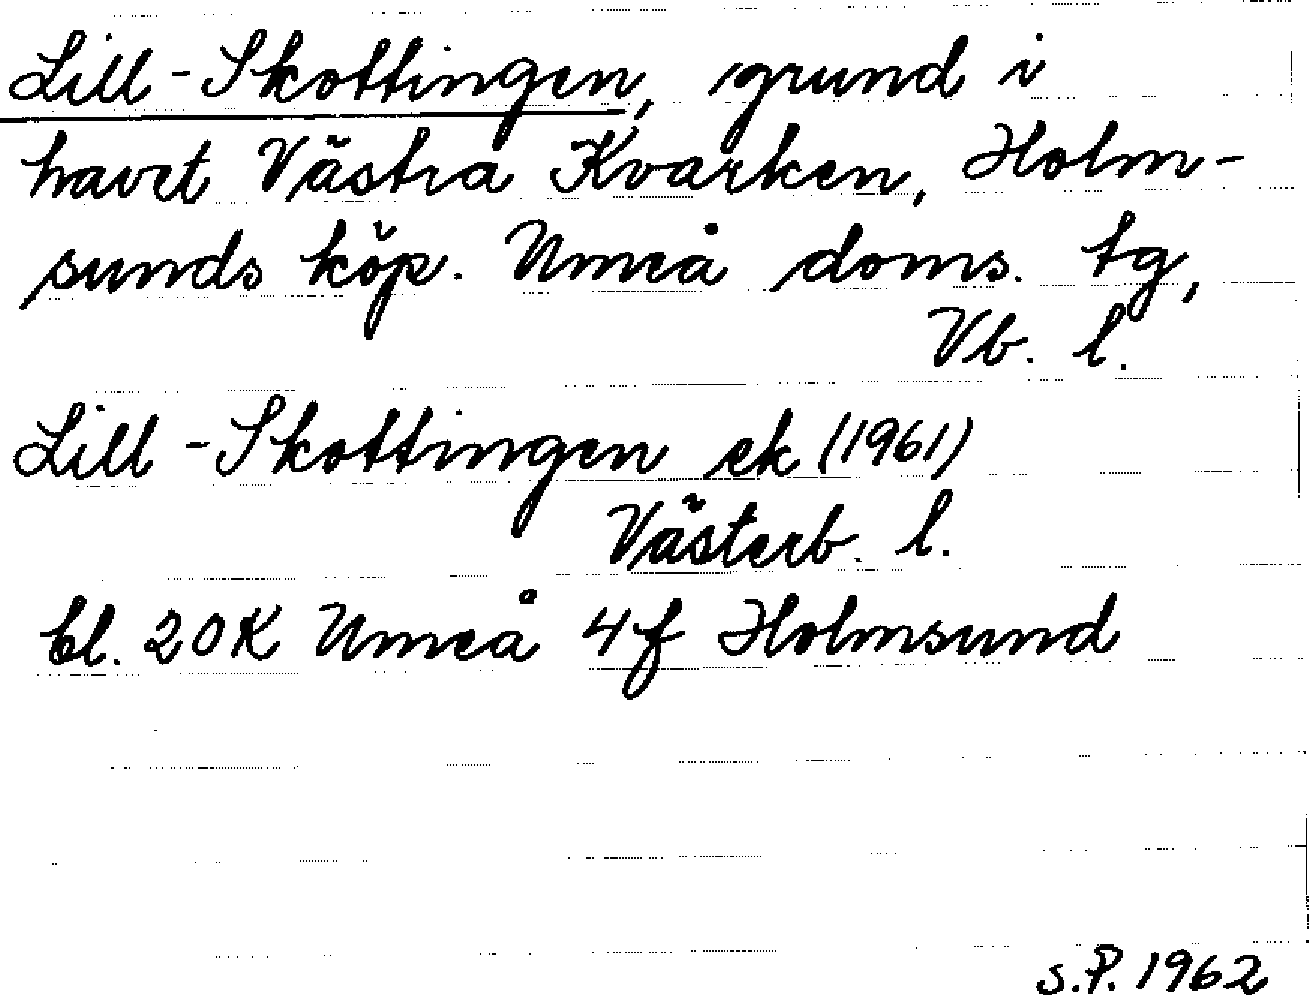 Lill-Skottingen, grund i
havet Västra Kvarken, Holm-
sunds köp. Umeå doms. tg,
Vb. l.
Lill-Skottingen ek (1961)
Västerb. l.
bl. 20K Umeå 4f Holmsund
S.P. 1962